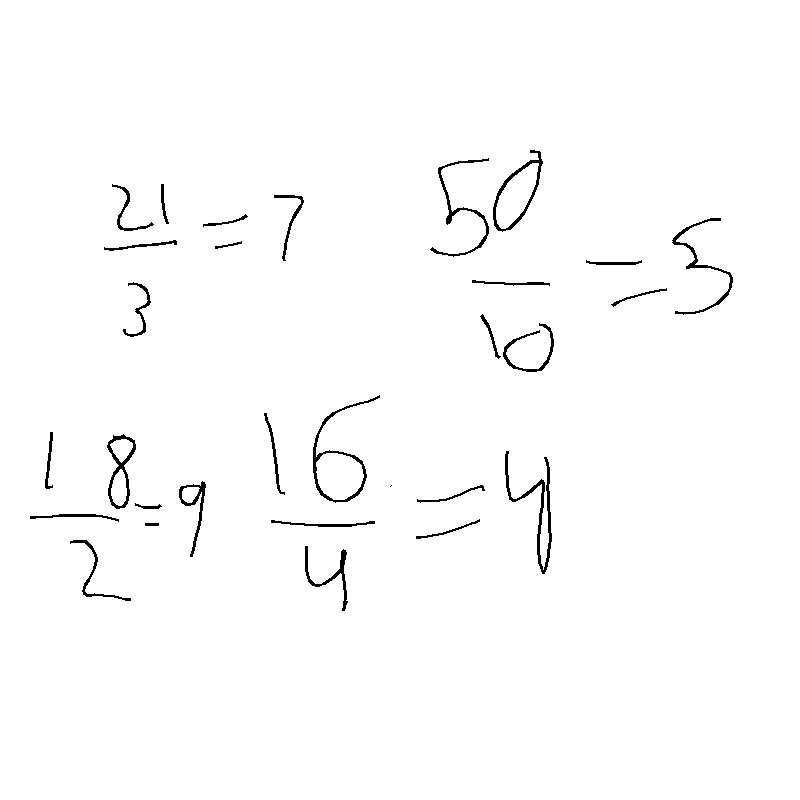 21/3 = 7 50/10 = 5
18/2 = 9 16/4 = 4